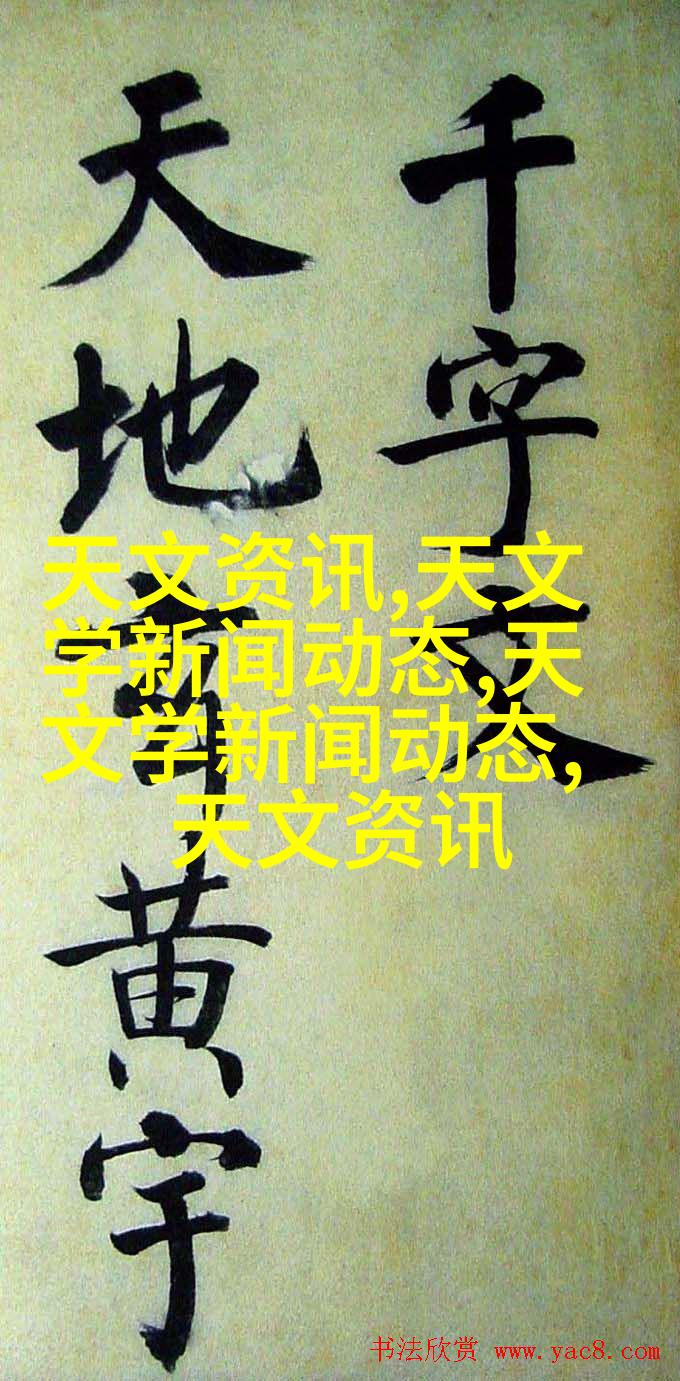 千字文
天地黄宇
天文资讯,天文
学新闻动态,天
文学新闻动态,
天文资讯
书法欣赏 www.yac8.com